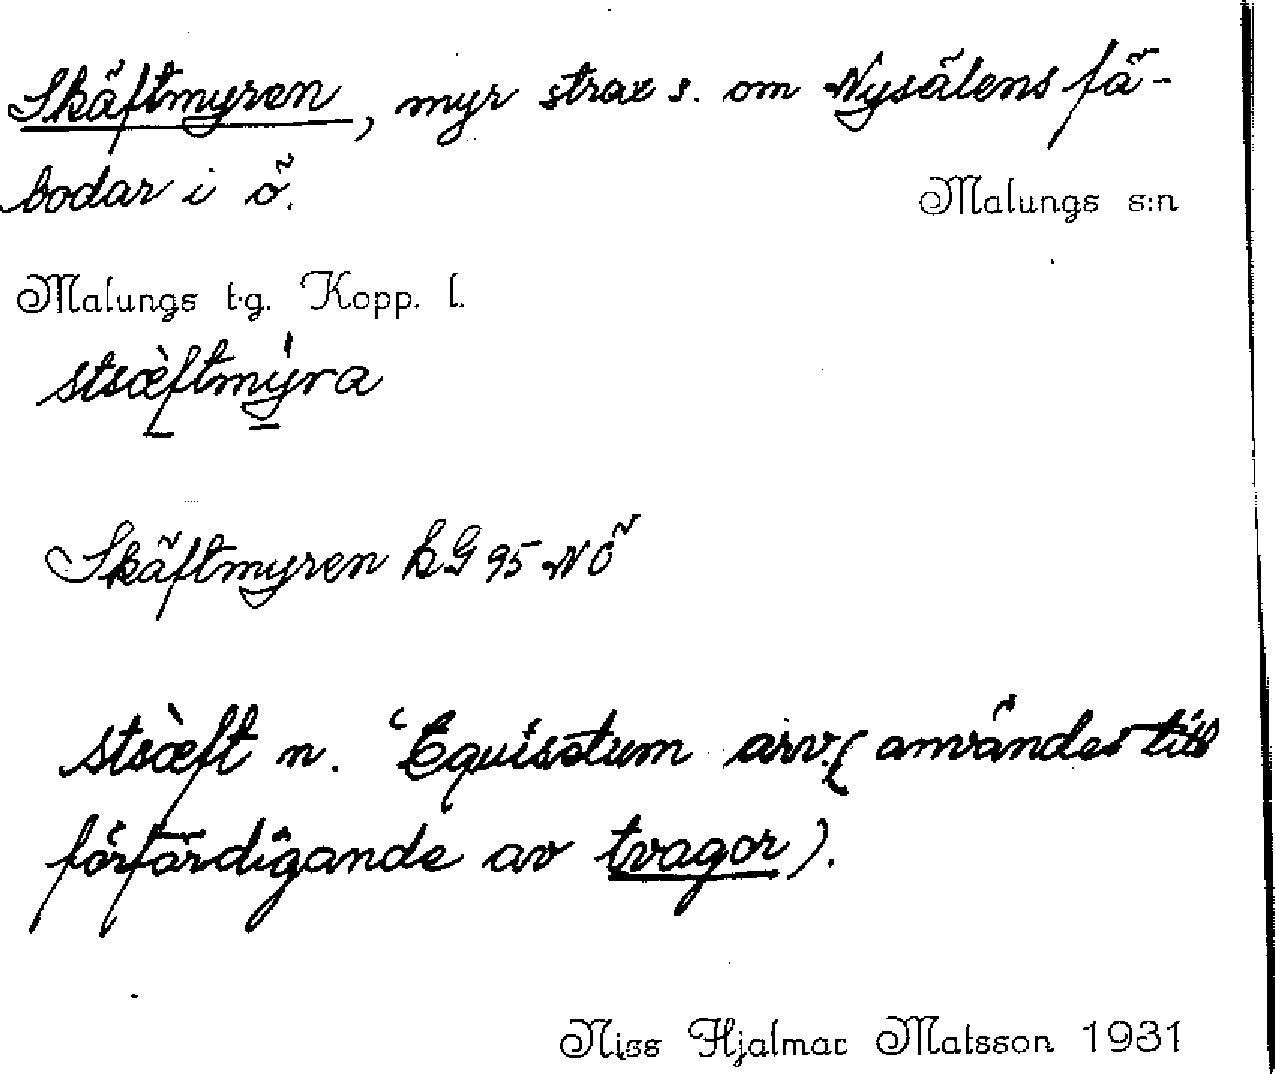 Skäftmyren, myr strax s. om Nysälens fä-
bodar i ö.
Malungs s:n
Malungs t.g. Kopp. l.
stsæftmýra
Skäftmyren kG 95 NÖ
stsæft n. ‘Equisetum arv. (användes till
förfärdigande av tvagor).
Niss Hjalmar Matsson 1931